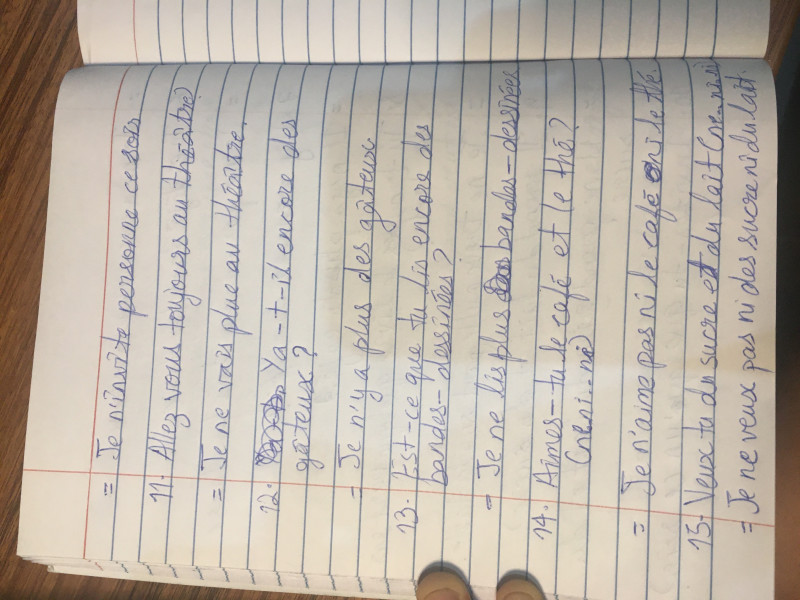 = Je n'invite personne ce soir
11. Allez vous toujours au théâtre?
= Je ne vais plue au théâtre.
12. Ya-t-il encore des
gâteux?
= Je n'y a plus des gâteux
13. Est-ce que tu lis encore des
bandes-dessinées?
= Je ne lis plus bandes-dessinées
14. Aimes-tu le café et le thé?
(ne ni...ni)
= Je n'aime pas ni le café ni le thé.
15. Veux tu du sucre et du lait (ne...ni.ni
= Je ne veux pas ni des sucre ni du lait.